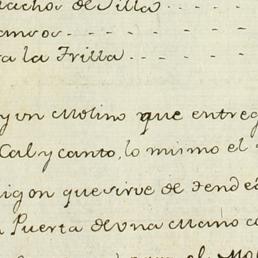 machos de Silla
ancos
a la Trilla
y vn Molino que entreg
Cal y canto, lo mismo el
igon que sirve de tende
Puerta de vna mano c
el Mol